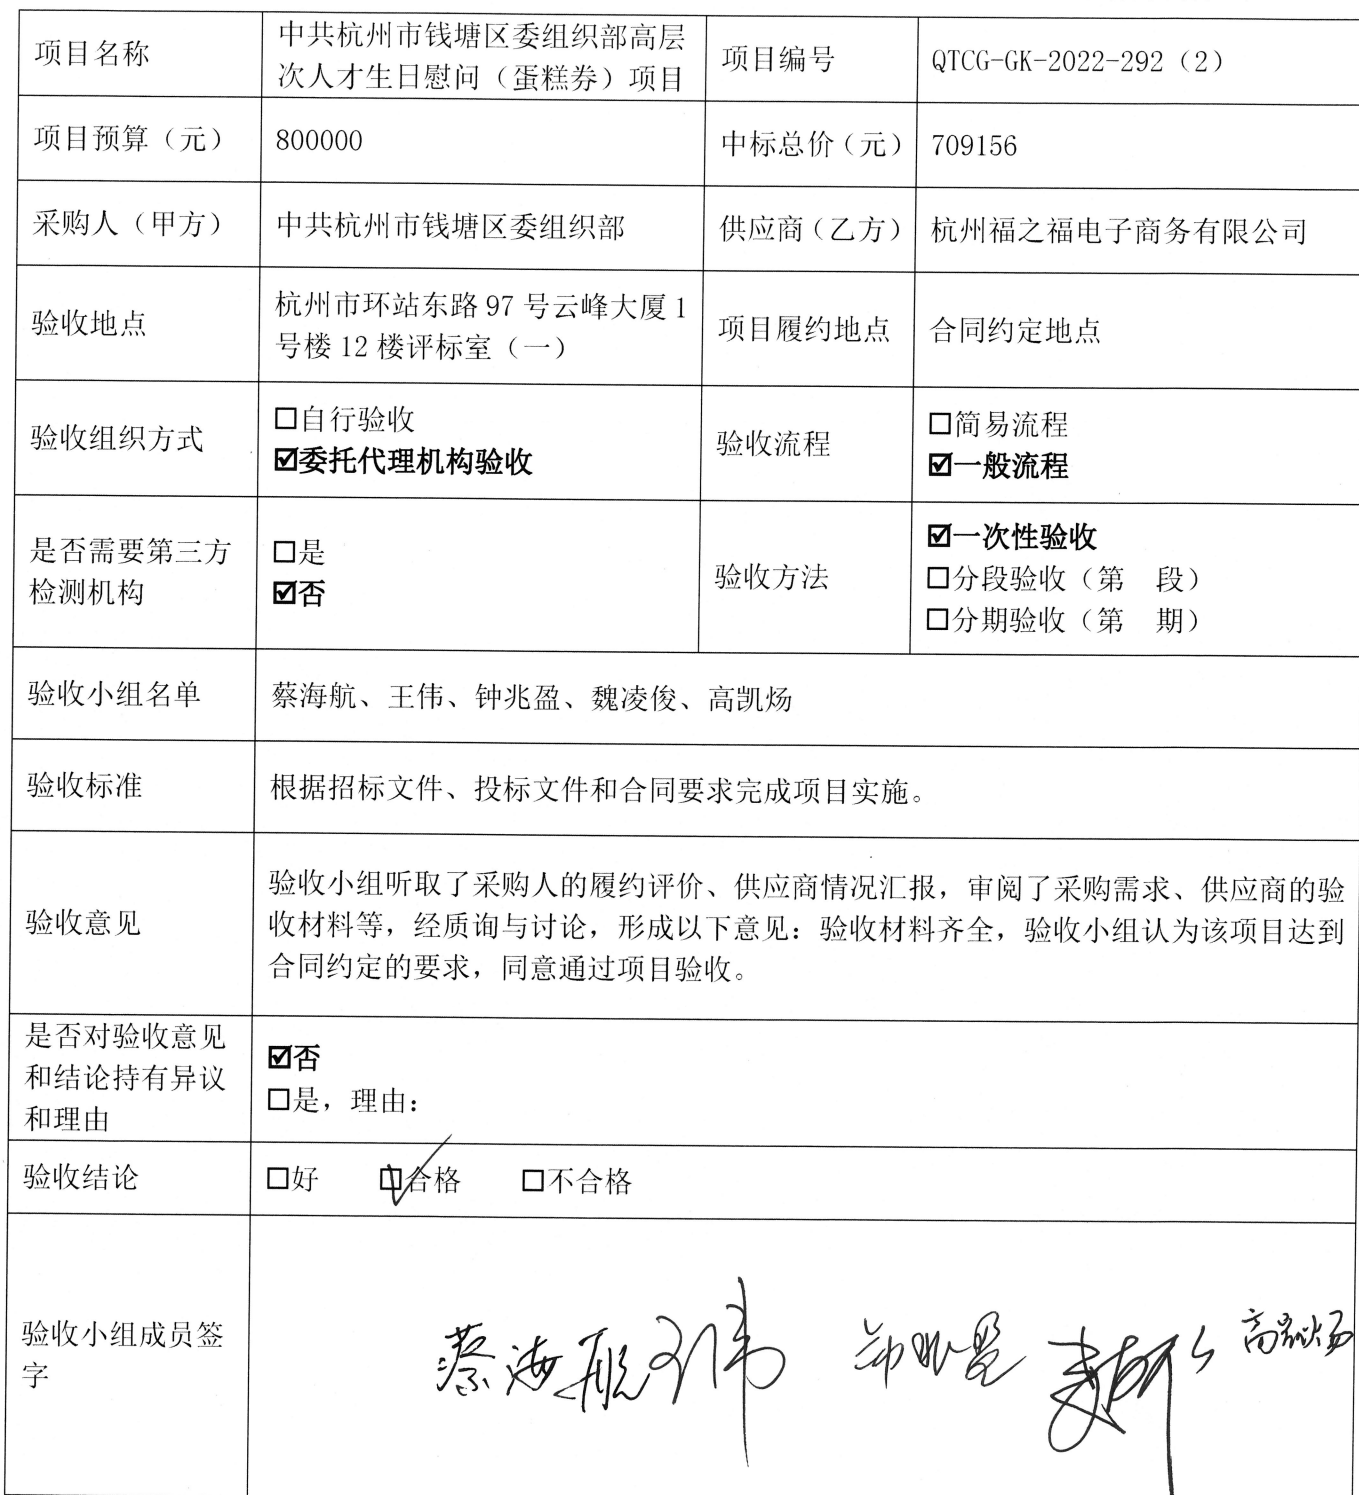 项目名称
中共杭州市钱塘区委组织部高层
次人才生日慰问（蛋糕券）项目
项目编号
QTCG-GK-2022-292（2）
项目预算（元）
800000
中标总价（元）
709156
采购人（甲方）
中共杭州市钱塘区委组织部
供应商（乙方）
杭州福之福电子商务有限公司
验收地点
杭州市环站东路 97 号云峰大厦 1
号楼 12 楼评标室（一）
项目履约地点
合同约定地点
验收组织方式
☐自行验收
☑委托代理机构验收
验收流程
☐简易流程
☑一般流程
是否需要第三方
检测机构
☐是
☑否
验收方法
☑一次性验收
☐分段验收（第　段）
☐分期验收（第　期）
验收小组名单
蔡海航、王伟、钟兆盈、魏凌俊、高凯炀
验收标准
根据招标文件、投标文件和合同要求完成项目实施。
验收意见
验收小组听取了采购人的履约评价、供应商情况汇报，审阅了采购需求、供应商的验
收材料等，经质询与讨论，形成以下意见：验收材料齐全，验收小组认为该项目达到
合同约定的要求，同意通过项目验收。
是否对验收意见
和结论持有异议
和理由
☑否
☐是，理由：
验收结论
☐好　☑合格　☐不合格
验收小组成员签
字
蔡海航 王伟 高凯炀